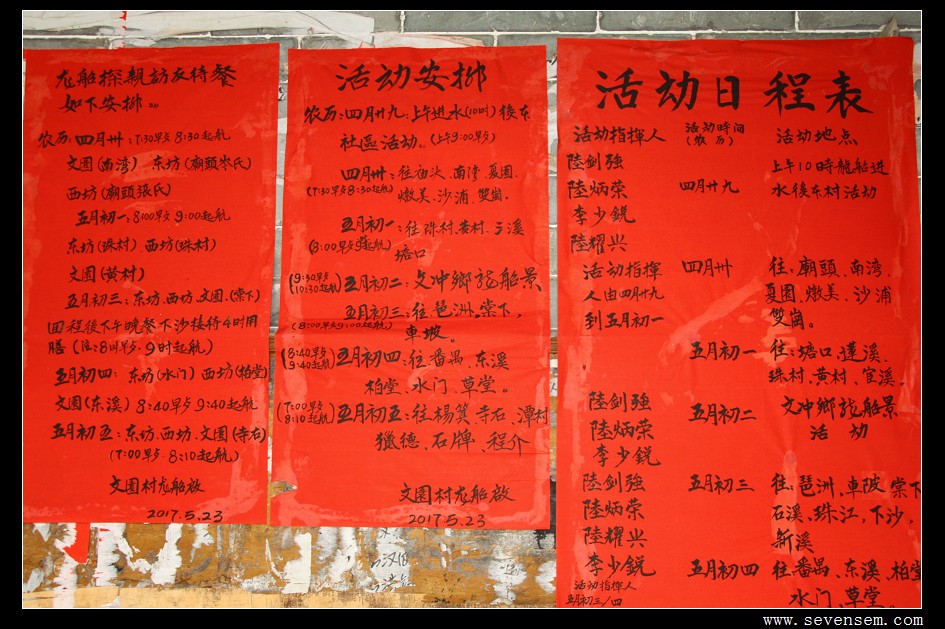 龙船探親訪友待餐
如下安排。
农历:四月卅:7:30早歺 8:30起航
文園(南湾) 东坊(廟頭岑氏)
西坊(廟頭張氏)
五月初一:8:00早歺 9:00起航
东坊(珠村) 西坊(珠村)
文園(黄村)
五月初三:东坊、西坊、文園、(棠下)
回程後下午晚餐下沙接待4时用
膳(注:8时早歺、9时起航)
五月初四: 东坊(水门) 西坊(柏堂)
文園(东溪) 8:40早歺 9:40起航
五月初五:东坊、西坊、文園(寺右)
(7:00早歺 8:10起航)
文園村龙船啟
2017.5.23
活动安排
农历:四月廿九:上午进水(10时)後东
社區活动。(上午9:00早歺)
四月卅:往庙头、南湾、夏園、
(7:30早歺8:30起航)
墩美、沙浦、雙崗。
五月初一:往珠村、黄村、
(8:00早歺9起航)
塘口
(9:30早歺
10:30起航)
五月初二:文冲鄉龍船景
五月初三:往琶洲、棠下、
(8:00早歺9:00起航)
車坡。
(8:40早歺
9:40起航)
五月初四:往番禺、东溪、
柏堂、水门、草堂。
(7:00早歺
8:10起航)
五月初五:往杨箕、寺右、潭村
獵德、石牌、程介
文園村龙船啟
2017.5.23
活动日程表
活动指揮人 活动時间 活动地点
(农历)
陸剑強
陸炳荣
李少銳
陸耀兴
四月廿九
上午10時龍船进
水後东村活动
活动指揮
人由四月廿九
到五月初一
四月卅 往:廟頭、南湾、
夏園、墩美、沙浦
雙崗。
五月初一 往:塘口、蓮溪、
珠村、黄村、官溪、
陸剑強
陸炳荣
李少銳
五月初二 文冲鄉龍船景
活动
陸剑強
陸炳荣
陸耀兴
李少銳
五月初三 往:琶洲、車陂、棠下
石溪、珠江、下沙、
新溪
五月初四 往番禺、东溪、柏堂
水门、草堂。
活动指揮人
五月初三/四
www.sevensem.com